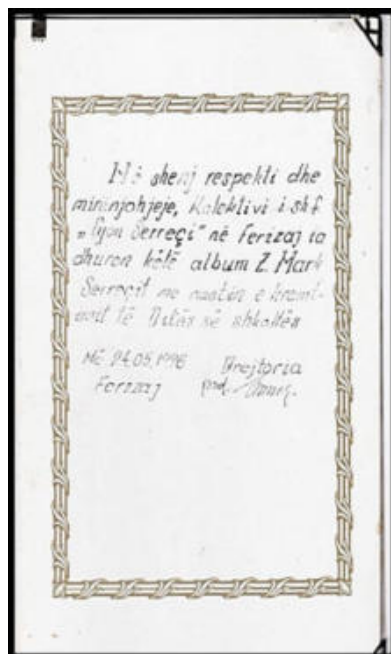 Në shenj respekti dhe
mirënjohjeje, Kolektivi i shf.
"Gjon Serreçi" në Ferizaj ia
dhuron këtë album Z. Mark
Serreçit me rastin e kremt-
imit të Ditës së shkollës
Më 24.05.1996 Drejtoria
Ferizaj prof.